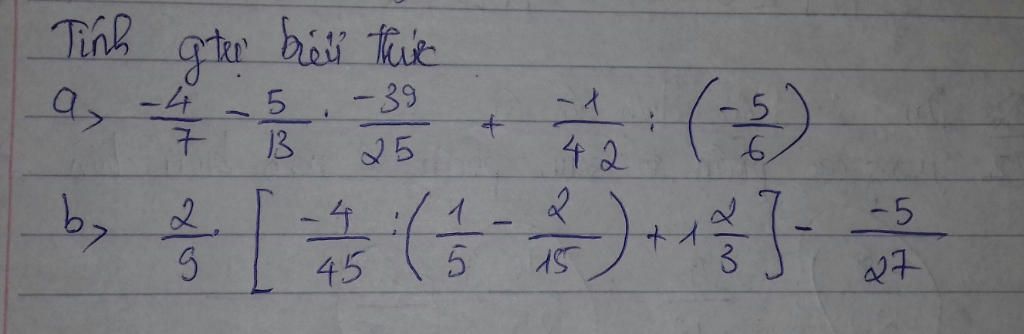 Tính gtrị biểu thức
a, -4/7 - 5/13 . -39/25 + -1/42 : (-5/6)
b, 2/9 . [ -4/45 : ( 1/5 - 2/15 ) + 1 2/3 ] - -5/27